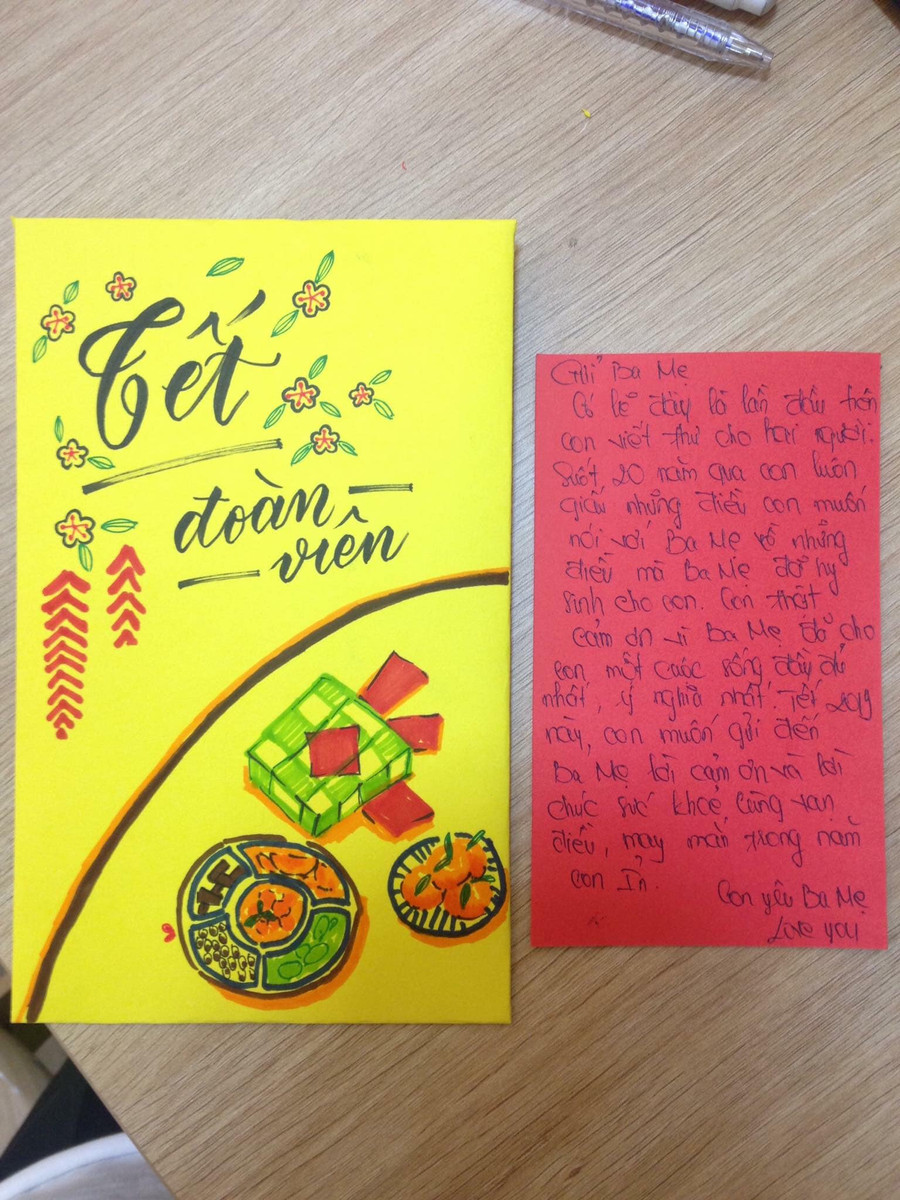 Tết
đoàn
viên
Gửi Ba Mẹ
Có lẽ đây là lần đầu tiên
con viết thư cho hai người.
Suốt 20 năm qua con luôn
giấu những điều con muốn
nói với Ba Mẹ về những
điều mà Ba Mẹ đã hy
sinh cho con. Con thật
cảm ơn vì Ba Mẹ đã cho
con một cuộc sống đầy đủ
nhất, ý nghĩa nhất. Tết 2019
này, con muốn gửi đến
Ba Mẹ lời cảm ơn và lời
chúc sức khoẻ, vạn
điều, may mắn trong năm
con Ỉn.
Con yêu Ba Mẹ
Love you